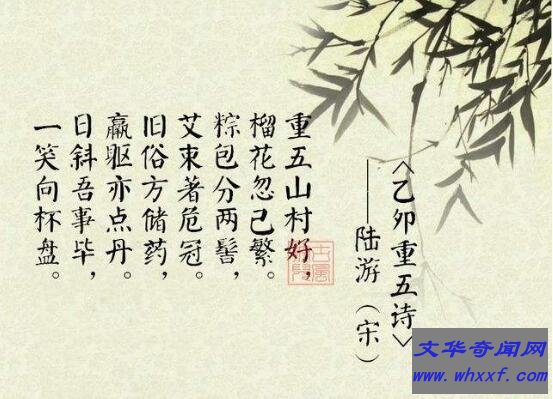 〈乙卯重五诗〉
——陆游（宋）
重五山村好，
榴花忽已繁。
粽包分两髻，
艾束著危冠。
旧俗方储药，
羸躯亦点丹。
日斜吾事毕，
一笑向杯盘。
文华奇闻网
www.whxxf.com